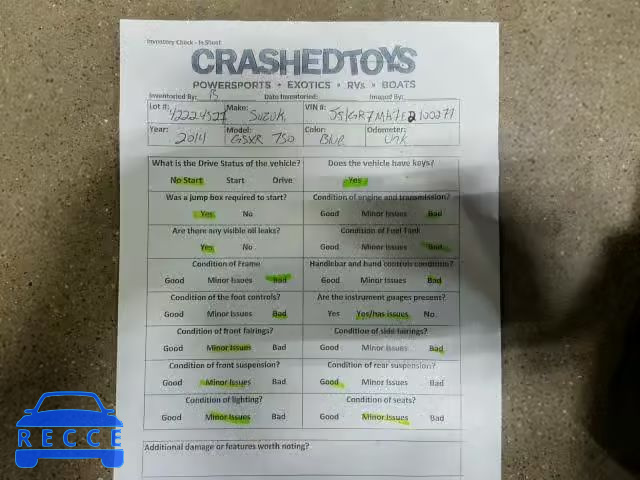 Inventory Check - In Shoot
CRASHEDTOYS
POWERSPORTS • EXOTICS • RVs • BOATS
Inventoried By: Date Inventoried: Imaged By:
Lot #: 42224527 Make: Suzuki VIN #: JS1GR7MA7E2100277
Year: 2014 Model: GSXR 750 Color: Blue Odometer: Unk
What is the Drive Status of the vehicle? Does the vehicle have keys?
No Start Start Drive Yes
Was a jump box required to start? Condition of engine and transmission?
Yes No Good Minor Issues Bad
Are there any visible oil leaks? Condition of Fuel Tank
Yes No Good Minor Issues Bad
Condition of Frame Handlebar and hand controls condition?
Good Minor Issues Bad Good Minor Issues Bad
Condition of the foot controls? Are the instrument guages present?
Good Minor Issues Bad Yes Yes/has issues No
Condition of front fairings? Condition of side fairings?
Good Minor Issues Bad Good Minor Issues Bad
Condition of front suspension? Condition of rear suspension?
Good Minor Issues Bad Good Minor Issues Bad
Condition of lighting? Condition of seats?
Good Minor Issues Bad Good Minor Issues Bad
Additional damage or features worth noting?
RECCE